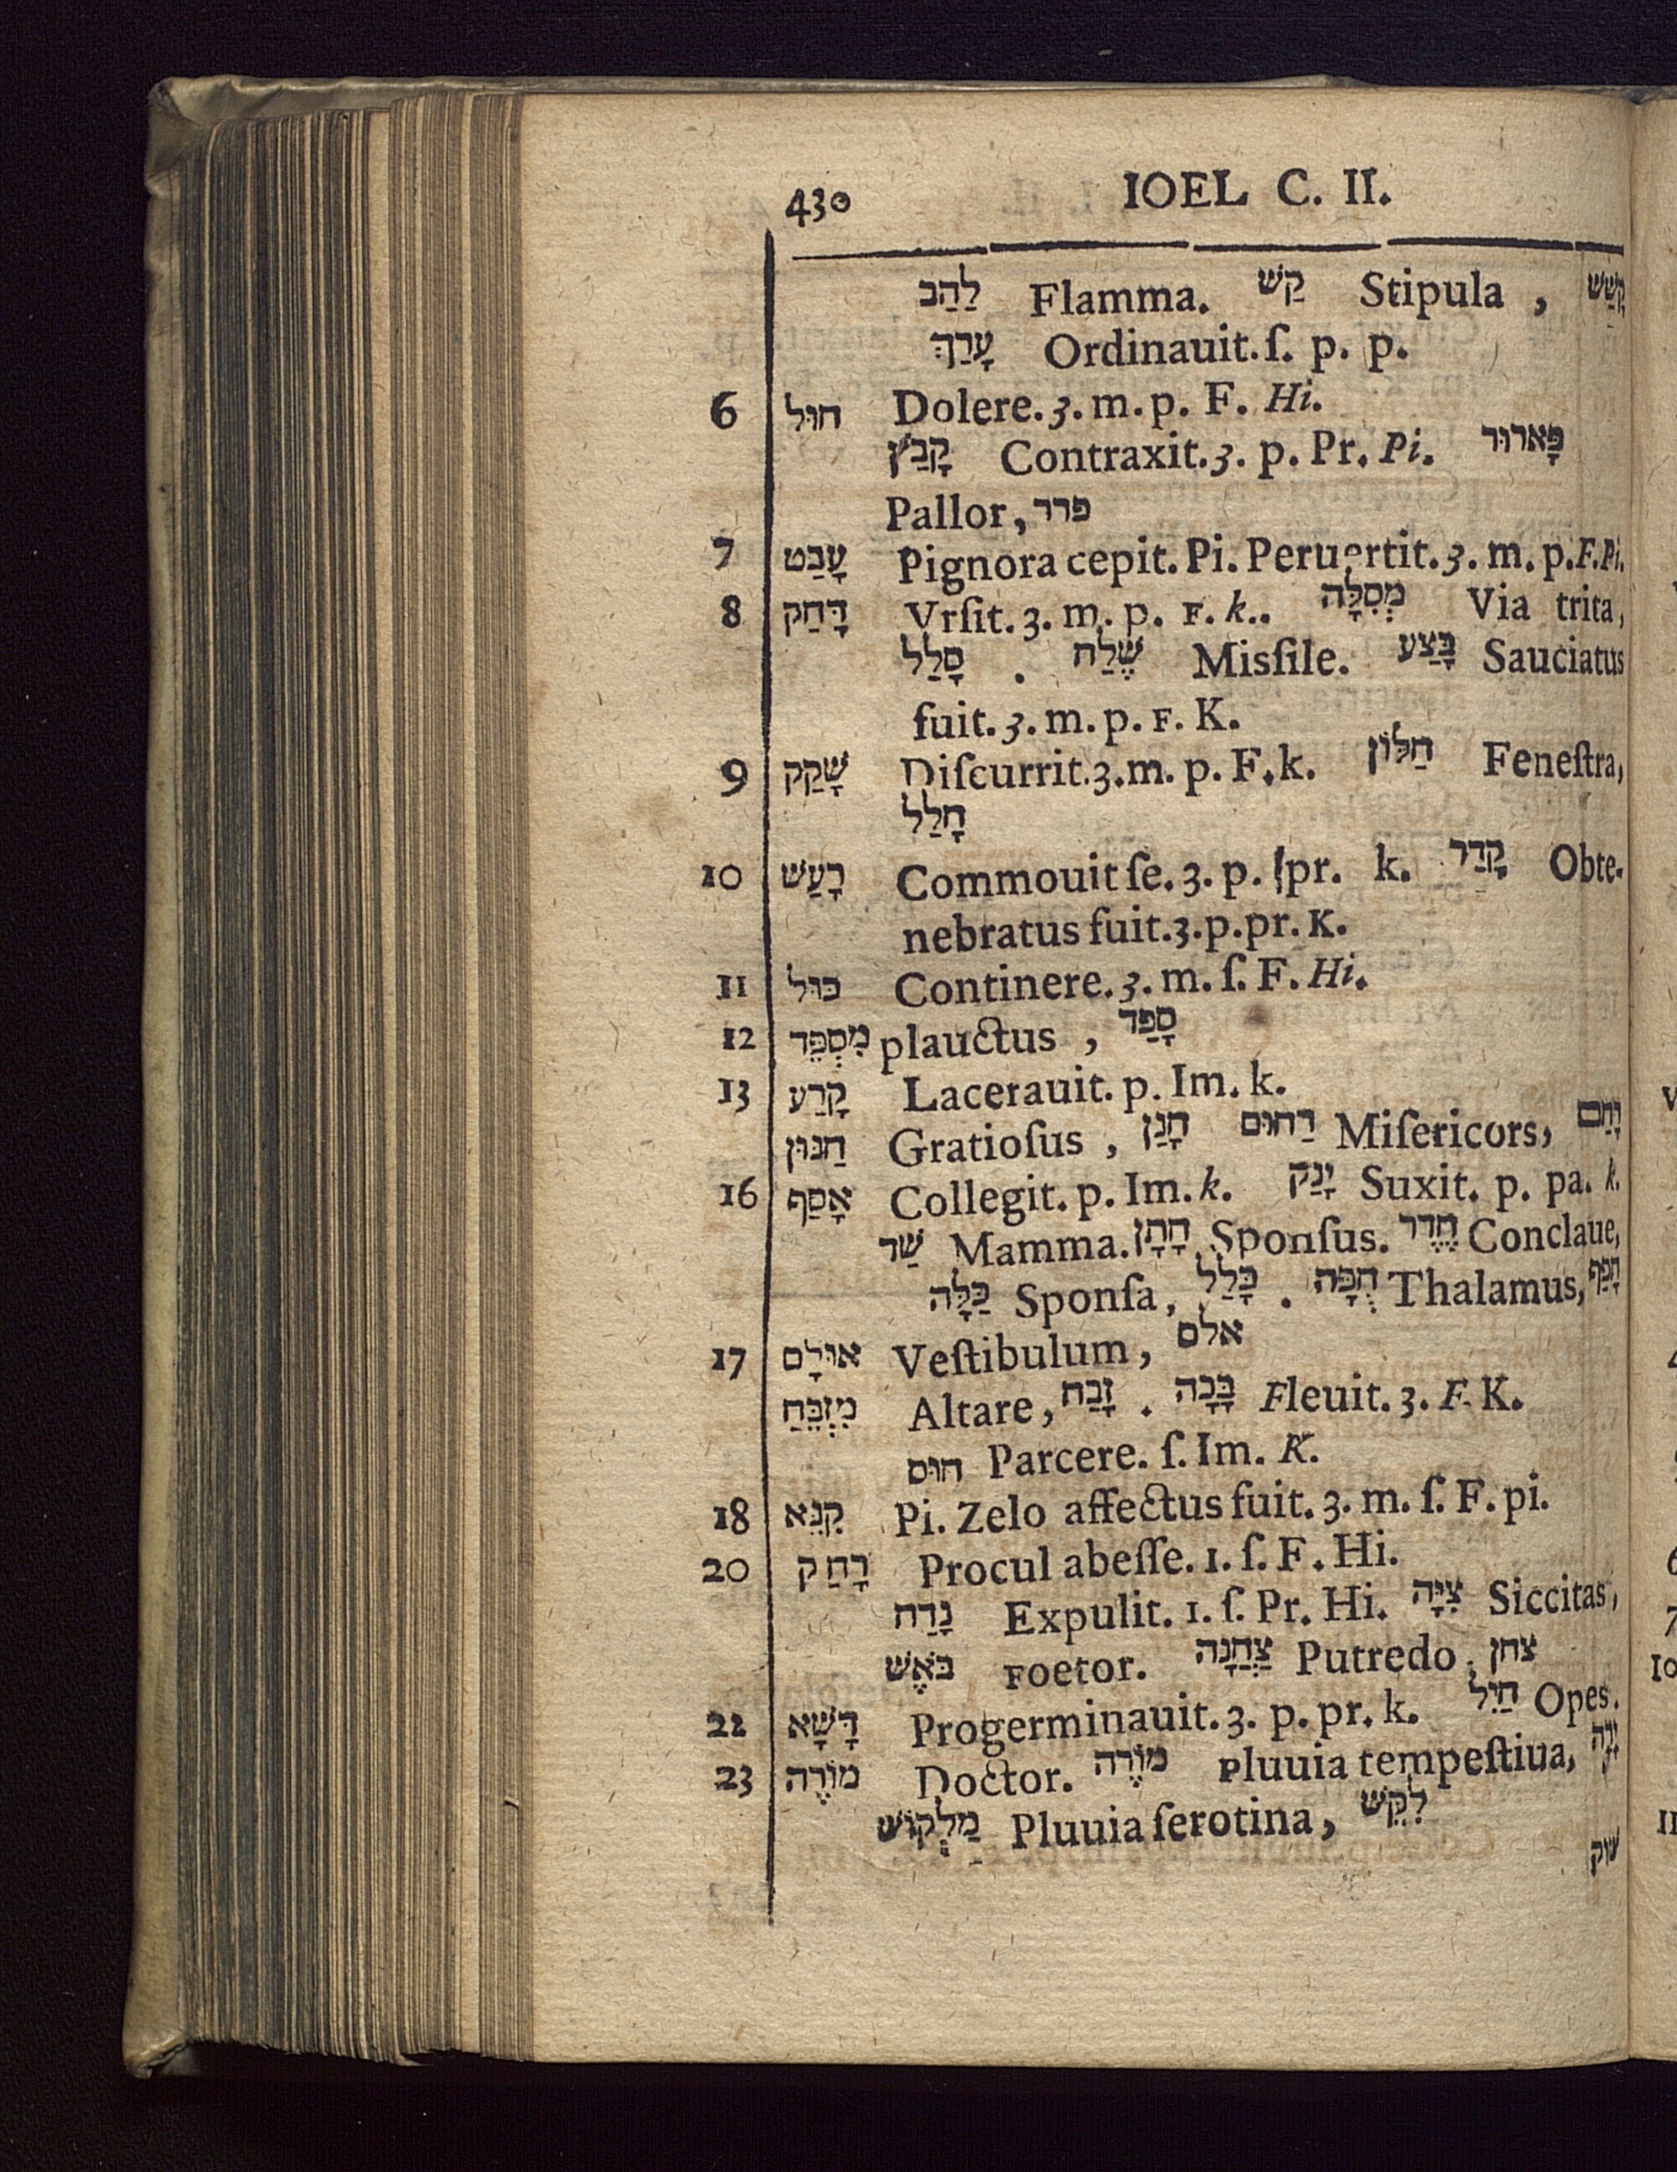 430 IOEL C. II.
לַהַב Flamma. קַשׁ Stipula , קָשַׁשׁ
עָרַךְ Ordinauit. ſ. p. p.
6 חוּל Dolere. 3. m. p. F. Hi.
קָבַץ Contraxit. 3. p. Pr. Pi. פָּארוּר
Pallor, פרר
7 עָבַט Pignora cepit. Pi. Peruertit. 3. m. p. F. Pi.
8 דָּחַק Vrſit. 3. m. p. F. k.. מְסִלָּה Via trita,
סָלַל . שֶׁלַח Misſile. בָּצַע Sauciatus
fuit. 3. m. p. F. K.
9 שָׁקַק Diſcurrit. 3. m. p. F. k. חַלּוֹן Feneſtra,
חָלַל
10 רָעַשׁ Commouit ſe. 3. p. pr. k. קָדַר Obte-
nebratus fuit. 3. p. pr. K.
11 כּוּל Continere. 3. m. ſ. F. Hi.
12 מִסְפֵּד plauctus , סָפַד
13 קָרַע Lacerauit. p. Im. k.
חַנּוּן Gratioſus , חָנַן רַחוּם Miſericors,
16 אָסַף Collegit. p. Im. k. יָנַק Suxit. p. pa. k.
שַׁד Mamma. חָתָן Sponſus. חֶדֶר Conclaue,
כַּלָּה Sponſa, כָּלַל . חֻפָּה Thalamus, חָפַף
17 אוּלָם Veſtibulum, אלם
מִזְבֵּחַ Altare, זָבַח . בָּכָה Fleuit. 3. F. K.
חוּם Parcere. ſ. Im. K.
18 קִנֵּא Pi. Zelo affectus fuit. 3. m. ſ. F. pi.
20 רָחַק Procul abeſſe. 1. ſ. F. Hi.
נָדַח Expulit. 1. ſ. Pr. Hi. צִיָּה Siccitas,
בֹּאֶשׁ Foetor. צַחֲנָה Putredo, צחן
22 דָּשָׁא Progerminauit. 3. p. pr. k. חַיִל Opes.
23 מוֹרֶה Doctor. מוֹרֶה Pluuia tempeſtiua, יָרָה
מַלְקוֹשׁ Pluuia ſerotina, לִקֵּשׁ
שׁוק